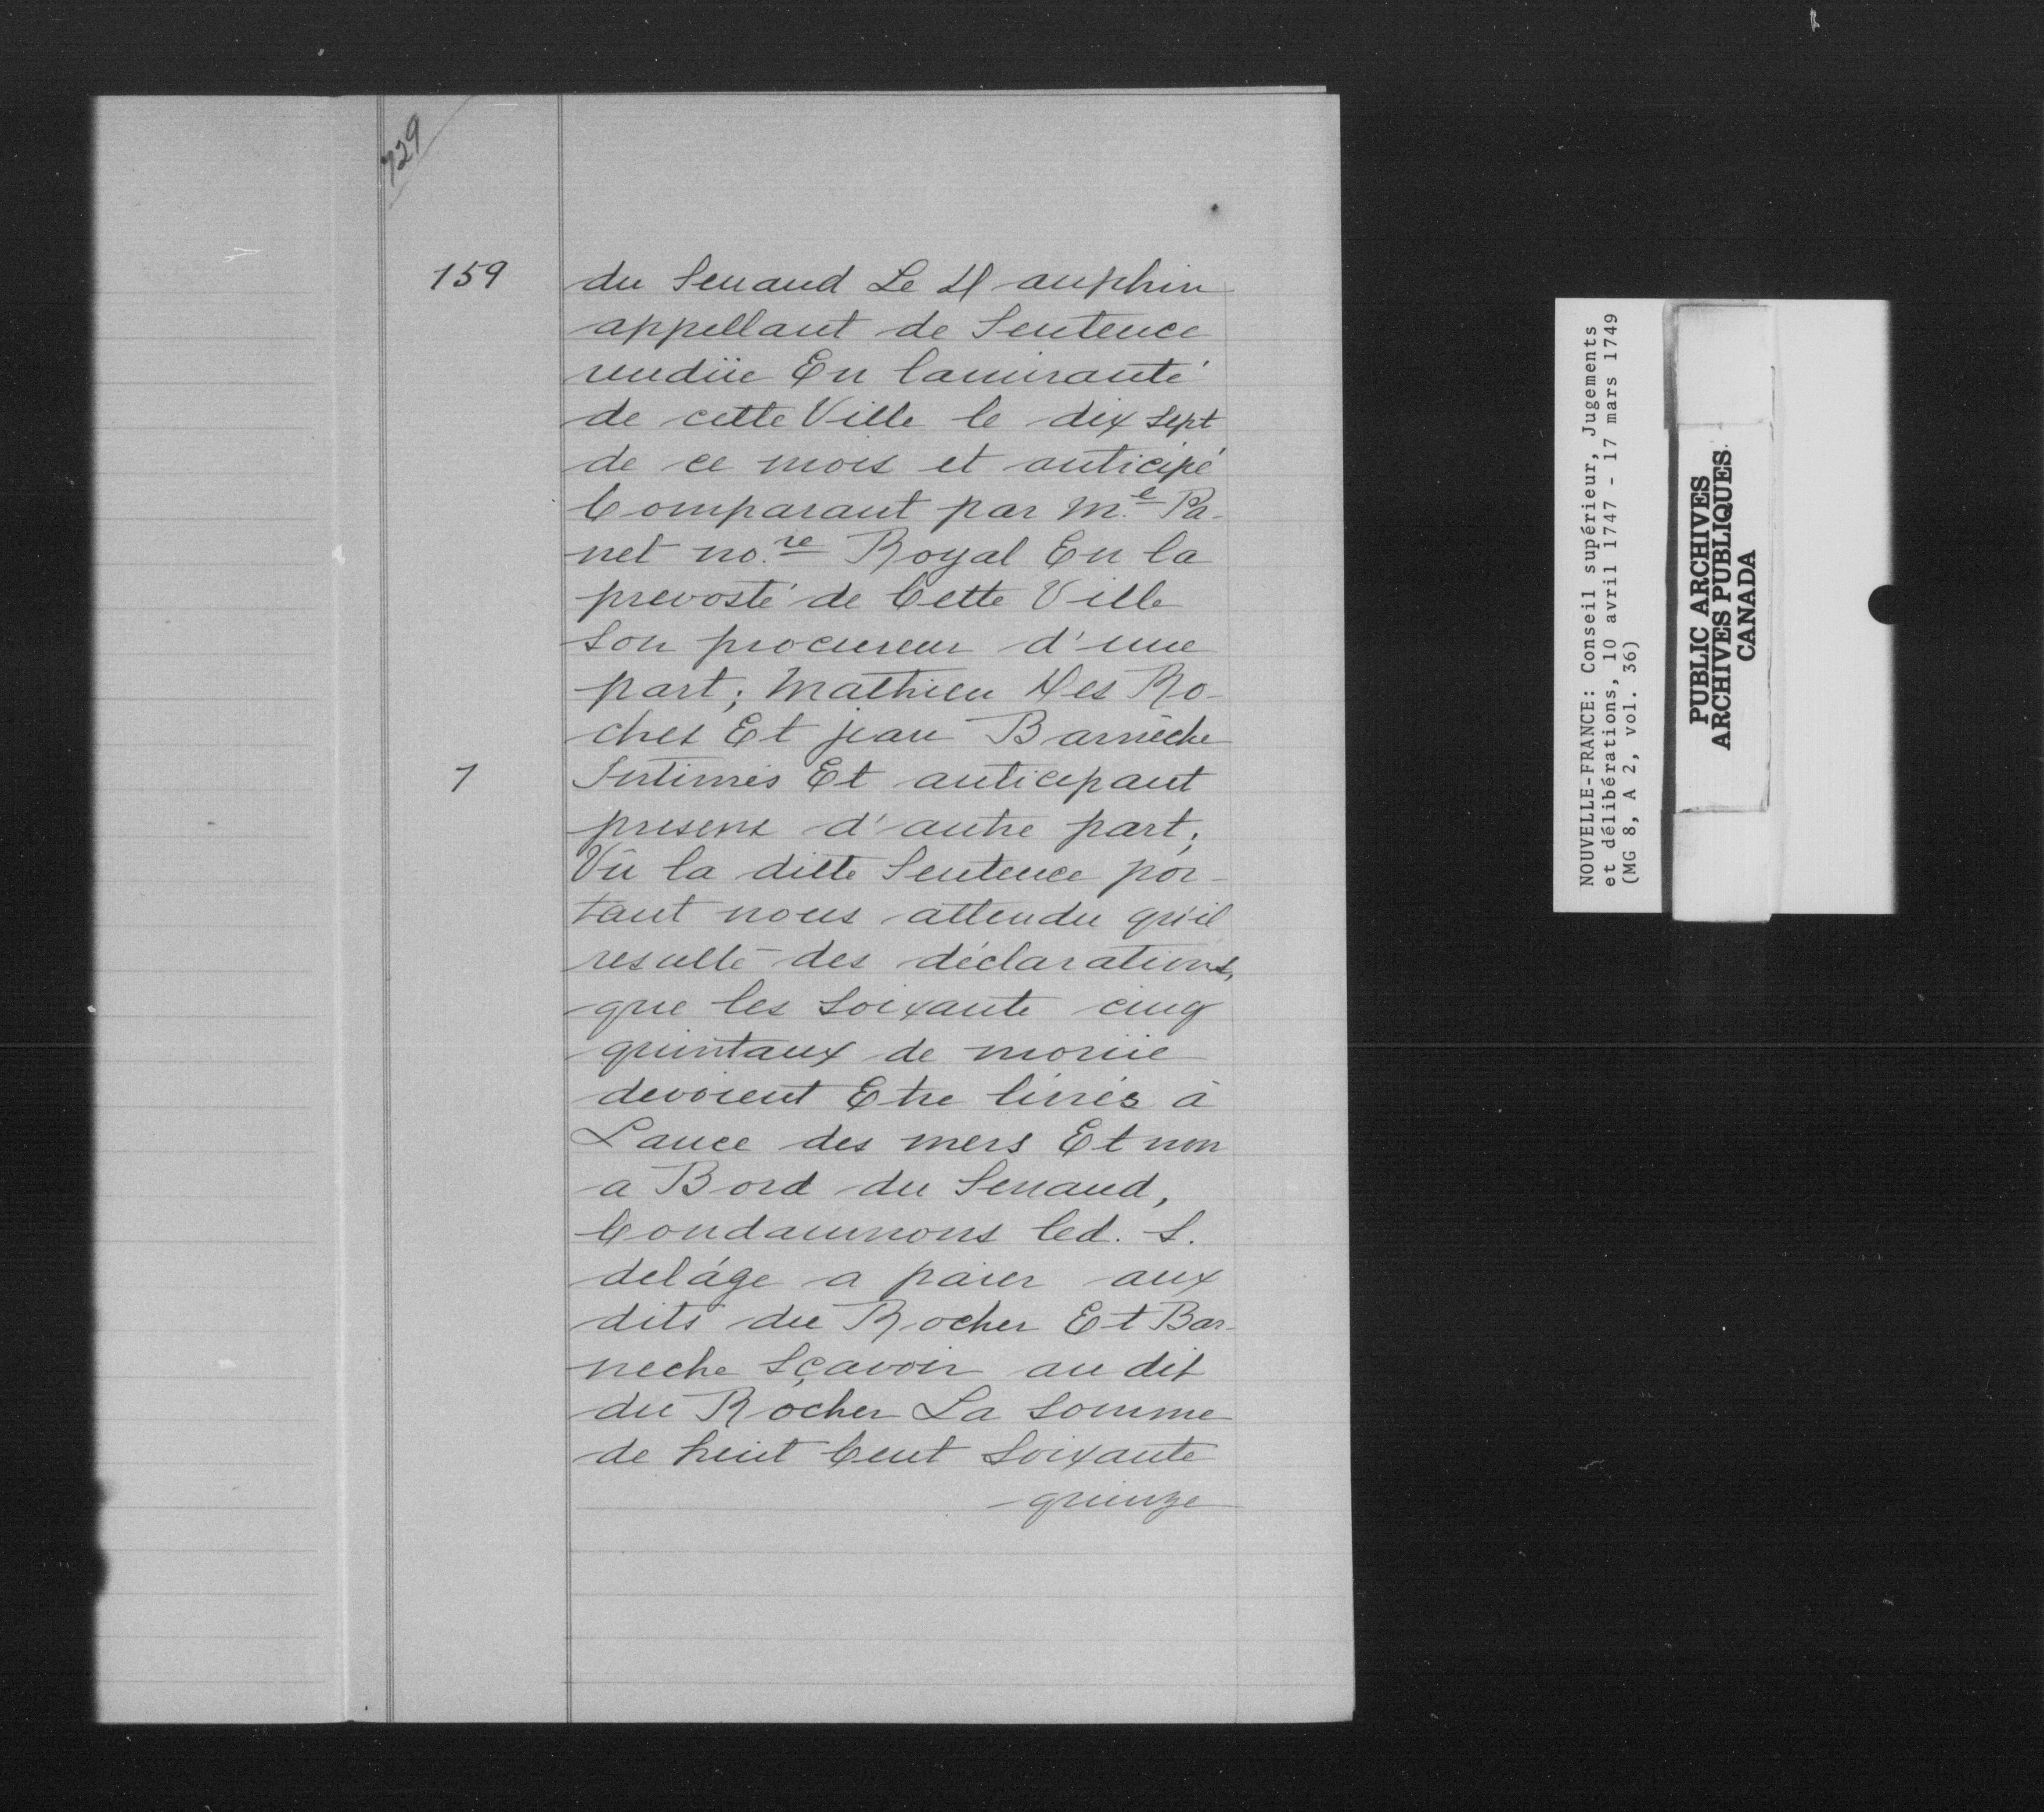 729
159 du Senaud Le Dauphin
appellant de Sentence
rendüe En lamirauté
de cette Ville le dix sept
de ce mois et anticipé
Comparant par M.e Pa-
net no.re Royal En la
prevosté de Cette Ville
Son procureur d'une
part; Mathieu Des Ro-
ches Et jean Barneche
1 Intimés Et anticipant
presens d'autre part;
Vû la ditte Sentence por-
tant nous attendu qu'il
resulte des déclarations,
que les Soixante cinq
quintaux de moruë
devoient Etre livrés à
Lance des mers Et non
a Bord du Senaud,
Condamnons led. S.
delâge a païer aux
dits du Rocher Et Bar-
neche Sçavoir au dit
du Rocher La Somme
de huit Cent Soixante
quinze
NOUVELLE-FRANCE: Conseil supérieur, Jugements
et délibérations, 10 avril 1747 - 17 mars 1749
(MG 8, A 2, vol. 36)
PUBLIC ARCHIVES
ARCHIVES PUBLIQUES
CANADA